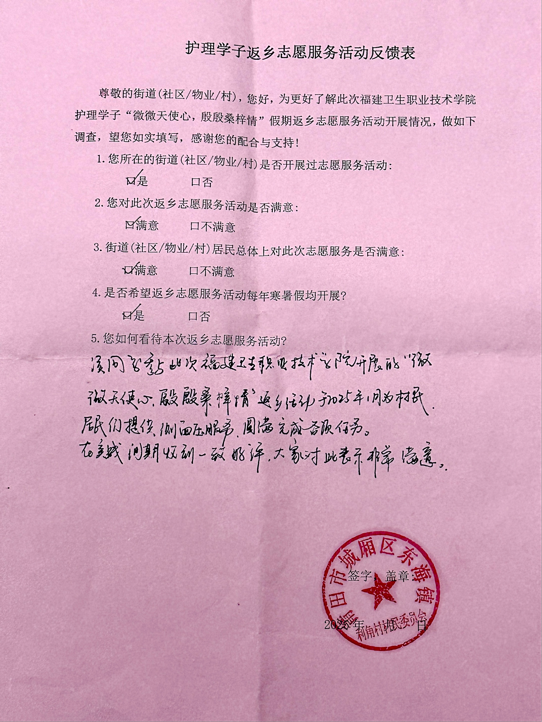 护理学子返乡志愿服务活动反馈表
尊敬的街道(社区/物业/村),您好,为更好了解此次福建卫生职业技术学院
护理学子“微微天使心,殷殷桑梓情”假期返乡志愿服务活动开展情况,做如下
调查,望您如实填写,感谢您的配合与支持!
1.您所在的街道(社区/物业/村)是否开展过志愿服务活动:
☑是 口否
2.您对此次返乡志愿服务活动是否满意:
☑满意 口不满意
3.街道(社区/物业/村)居民总体上对此次志愿服务是否满意:
☑满意 口不满意
4.是否希望返乡志愿服务活动每年寒暑假均开展?
☑是 口否
5.您如何看待本次返乡志愿服务活动?
此次福建卫生职业技术学院开展的“微
微天使心,殷殷桑梓情”返乡活动于2025年1月为村民
居民们提供测血压服务,圆满完成各项任务。
在实践期间收到一致好评,大家对此表示非常满意。
签字 盖章
莆田市城厢区东海镇
利角村村民委员会
年 日